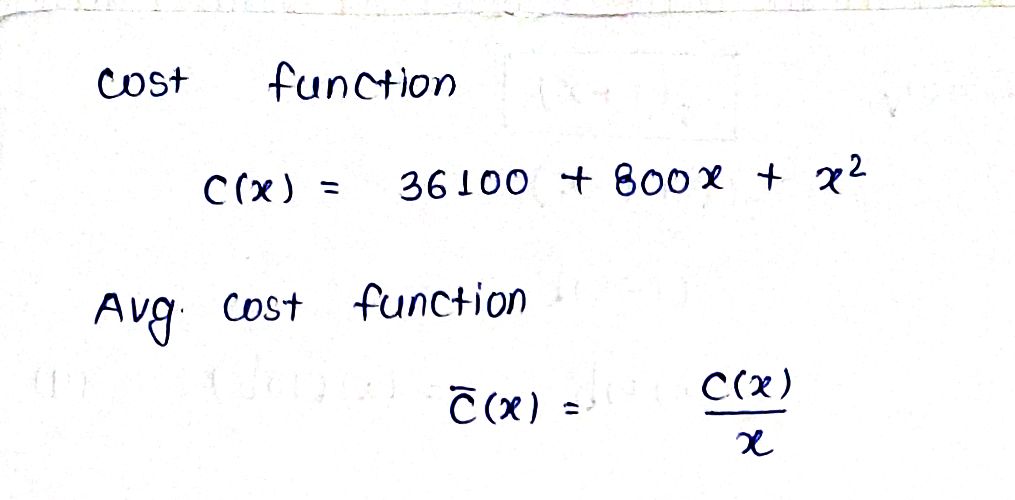 cost function
C(x) = 36100 + 800x + x²
Avg. cost function
C̄(x) = C(x)/x